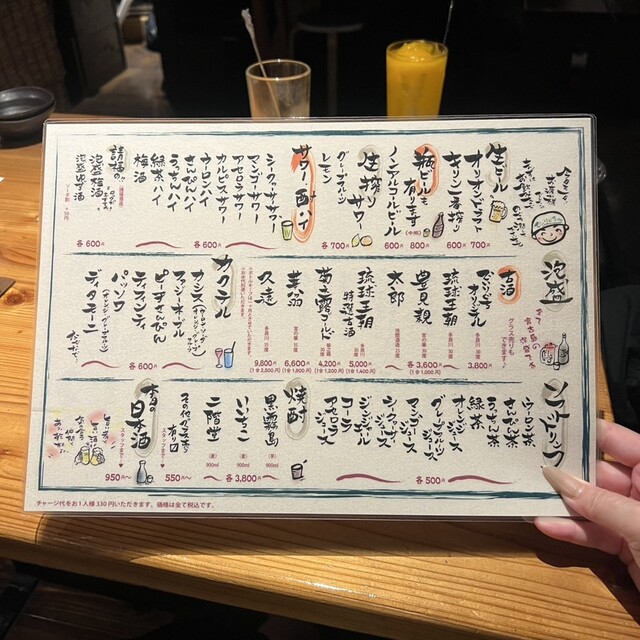 生ビール
オリオンドラフト
700円
キリン一番搾り
600円
瓶ビールも有ります
(中瓶)
800円
ノンアルコールビール
600円
生搾りサワー
グレープフルーツ
レモン
各700円
サワー・酎ハイ
シークヮーサーサワー
マンゴーサワー
アセロラサワー
カルピスサワー
各600円
ウーロンハイ
さんぴんハイ
うっちんハイ
緑茶ハイ
梅酒
請福の
泡盛梅酒
泡盛ゆず酒
各600円
泡盛
グラス売りもできます!
古酒
3,800円
琉球王朝
豊見親
各3,600円
(1合1,000円)
太郎
琉球王朝
特選古酒
5,000円
(1合1,400円)
菊之露ゴールド
4,200円
(1合1,200円)
6,600円
(1合1,800円)
久遠
9,800円
(1合2,500円)
カクテル
カシス
ファジーネーブル
ピーチさんぴん
ティフィンティ
パッソア
ディタモーニ
各600円
ソフトドリンク
ウーロン茶
さんぴん茶
うっちん茶
緑茶
オレンジジュース
グレープフルーツジュース
マンゴージュース
シークヮーサージュース
ジンジャーエール
コーラ
アセロラジュース
各500円
焼酎
黒霧島
(芋)
900ml
いいちこ
(麦)
900ml
二階堂
(麦)
900ml
各3,800円
550円〜
本日の日本酒
スタッフまで
950円〜
チャージ代をお1人様330円いただきます。価格は全て税込です。